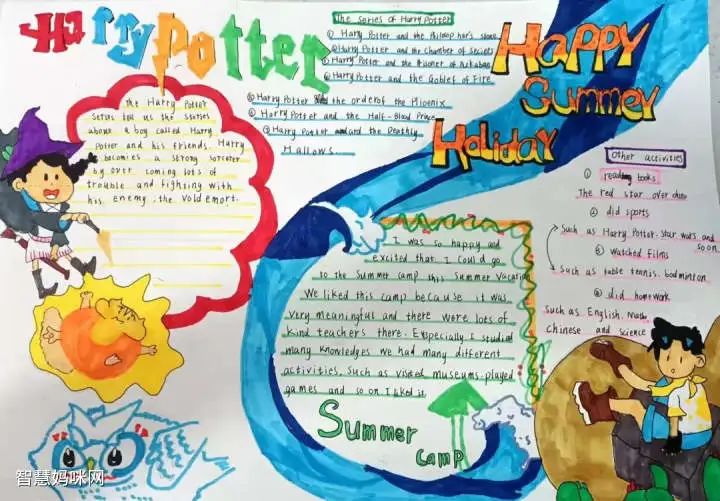 Harry Potter
The Harry Potter
series tell us the stories
about a boy called Harry
Potter and his friends. Harry
becomes a strong sorcerer
by over coming lots of
trouble and fighting with
his enemy, the Voldemort.
The Series of Harry Potter
① Harry Potter and the Philosopher's stone
② Harry Potter and the chamber of Secrets
③ Harry Potter and the Prisoner of Azkaban
④ Harry Potter and the Goblet of Fire
⑤ Harry Potter and the order of the Phoenix
⑥ Harry Potter and the Half-Blood Prince
⑦ Harry Potter and the Deathly
Hallows.
Happy
Summer
Holiday
I was so happy and
excited that I could go
to the Summer camp this Summer Vacation
We liked this camp because it was
very meaningful and there were lots of
kind teachers there. Especially I studied
many knowledges we had many different
activities. Such as visited museums. played
games and so on I liked it
Summer
Camp
Other activities
① reading books
The red star over
② did sports
Such as Harry Potter. Star wars and
so on
③ watched films
Such as table tennis. badminton
④ did homework
Such as English. Math
chinese and science
智慧妈咪网